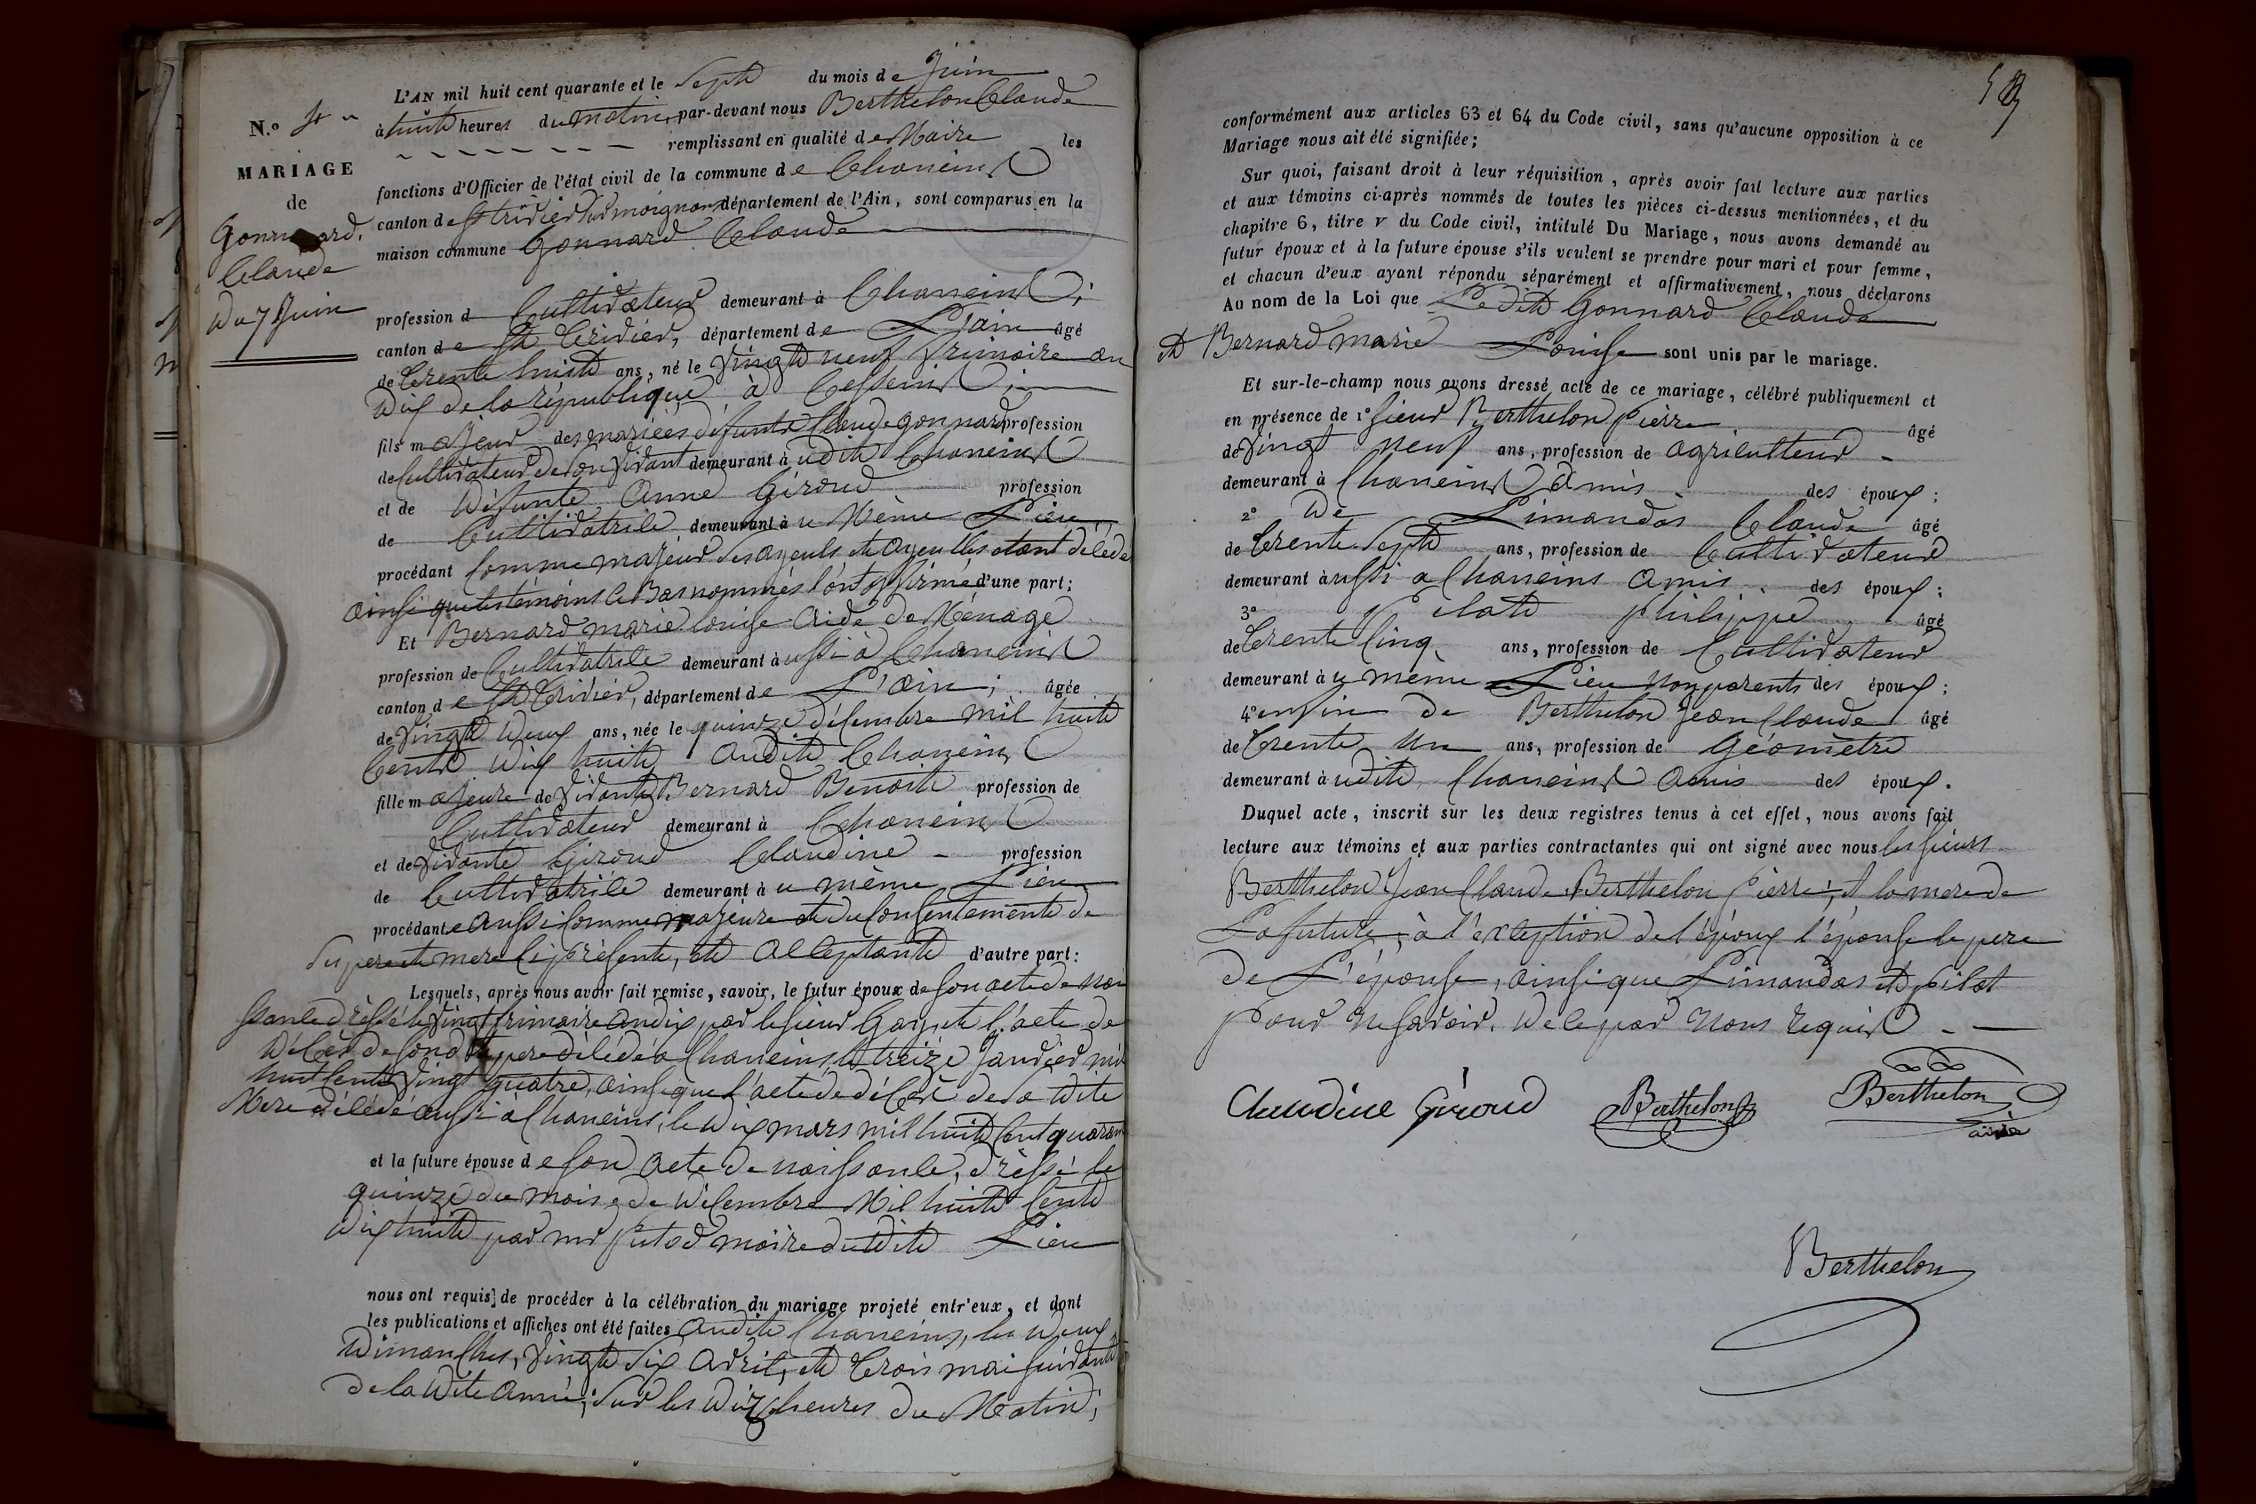 L'AN mil huit cent quarante et le Septe du mois de Juin
à huite heures du matin, par-devant nous Berthelon Claude
remplissant en qualité de Maire les
fonctions d'Officier de l'état civil de la commune de Chaneins
canton de St trivier Sur moignans département de l'Ain, sont comparus en la
maison commune Gonnard Claude
N.o
MARIAGE
de
Gonnard
Claude
du 7 Juin
profession d Cultivateur demeurant à Chaneins ;
canton de St Trivier, département de L'ain âgé
de trente huite ans, né le vingte neuf frimaire an
dix de la république à Cesseins ;
fils majeur des mariées défunts Claude gonnard profession
de Cultivateur de son vivant demeurant à udite Chaneins
et de défunte Anne Giroud profession
de Cultivatrice demeurant à u Même Lieu
procédant Comme majeur Ses ayeuls et ayeulles étant décédé
ainsi que les témoins ci Bas nommés l'ont affirmé d'une part ;
Et Bernard marie louise aide de Ménage
profession de Cultivatrice demeurant à ussi à Chaneins
canton de St Trivier, département de L'ain ; âgée
de vingte deux ans, née le quinze décembre mil huite
Cente dix huite audite Chaneins
fille majeure de vivante Bernard Benoite profession de
Cultivateur demeurant à Chaneins
et de vivante Giroud Claudine profession
de Cultivatrice demeurant à u même Lieu
procédante aussi Comme majeure et du consentemente de
Ses pere et mere Ci présente, et acceptante d'autre part :
Lesquels, après nous avoir fait remise, savoir, le futur époux de son acte de nai
ssance dressé le vingt frimaire an dix, par le sieur et l'acte de
décès de son dit pere décédé a Chaneins, le treize Janvier mil
huit Cente vingt quatre, ainsi que l'acte de décès de Sa dite
Mere décédé aussi à Chaneins, le dix mars mil huite Cent quarante
et la future épouse de son acte de naissance, dressé le
quinze du mois de décembre Mil huite Cente
dix huite par mr maire dudite Lieu
nous ont requis de procéder à la célébration du mariage projeté entr'eux, et dont
les publications et affiches ont été faites audite Chaneins, les deux
dimanches, vingte six avril, et trois mai suivante
de la dite année, Sur les dix heures du Matin ;
conformément aux articles 63 et 64 du Code civil, sans qu'aucune opposition à ce
Mariage nous ait été signifiée ;
Sur quoi, faisant droit à leur réquisition, après avoir fait lecture aux parties
et aux témoins ci-après nommés de toutes les pièces ci-dessus mentionnées, et du
chapitre 6, titre v du Code civil, intitulé Du Mariage, nous avons demandé au
futur époux et à la future épouse s'ils veulent se prendre pour mari et pour femme,
et chacun d'eux ayant répondu séparément et affirmativement, nous déclarons
Au nom de la Loi que Ledite Gonnard Claude
et Bernard marie Louise sont unis par le mariage.
Et sur-le-champ nous avons dressé acte de ce mariage, célébré publiquement et
en présence de 1° Sieur Berthelon Pierre âgé
de vingt neuf ans, profession de agriculteur
demeurant à Chaneins amis des époux ;
2° de Limandas Claude âgé
de trente Septe ans, profession de Cultivateur
demeurant à ussi a Chaneins amis des époux ;
3° Pilate Philippe âgé
de trente Cinq ans, profession de Cultivateur
demeurant à u même Lieu non parents des époux ;
4° enfin de Berthelon Jean Claude âgé
de trente un ans, profession de Géomètre
demeurant à udite Chaneins amis des époux.
Duquel acte, inscrit sur les deux registres tenus à cet effet, nous avons fait
lecture aux témoins et aux parties contractantes qui ont signé avec nous les sieurs
Berthelon Jean Claude, Berthelon Pierre, et la mere de
La future, à l'exception de l'époux l'épouse le pere
de L'épouse, ainsi que Limandas et pilat
pour ne Savoir. de ce par nous requis
Claudine Giroud Berthelon Berthelon
ainé
Berthelon